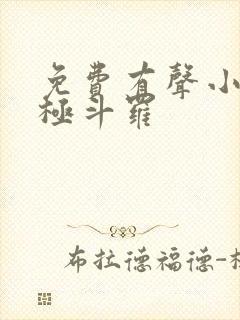 免費有聲小
極斗羅
布拉德福德-杜